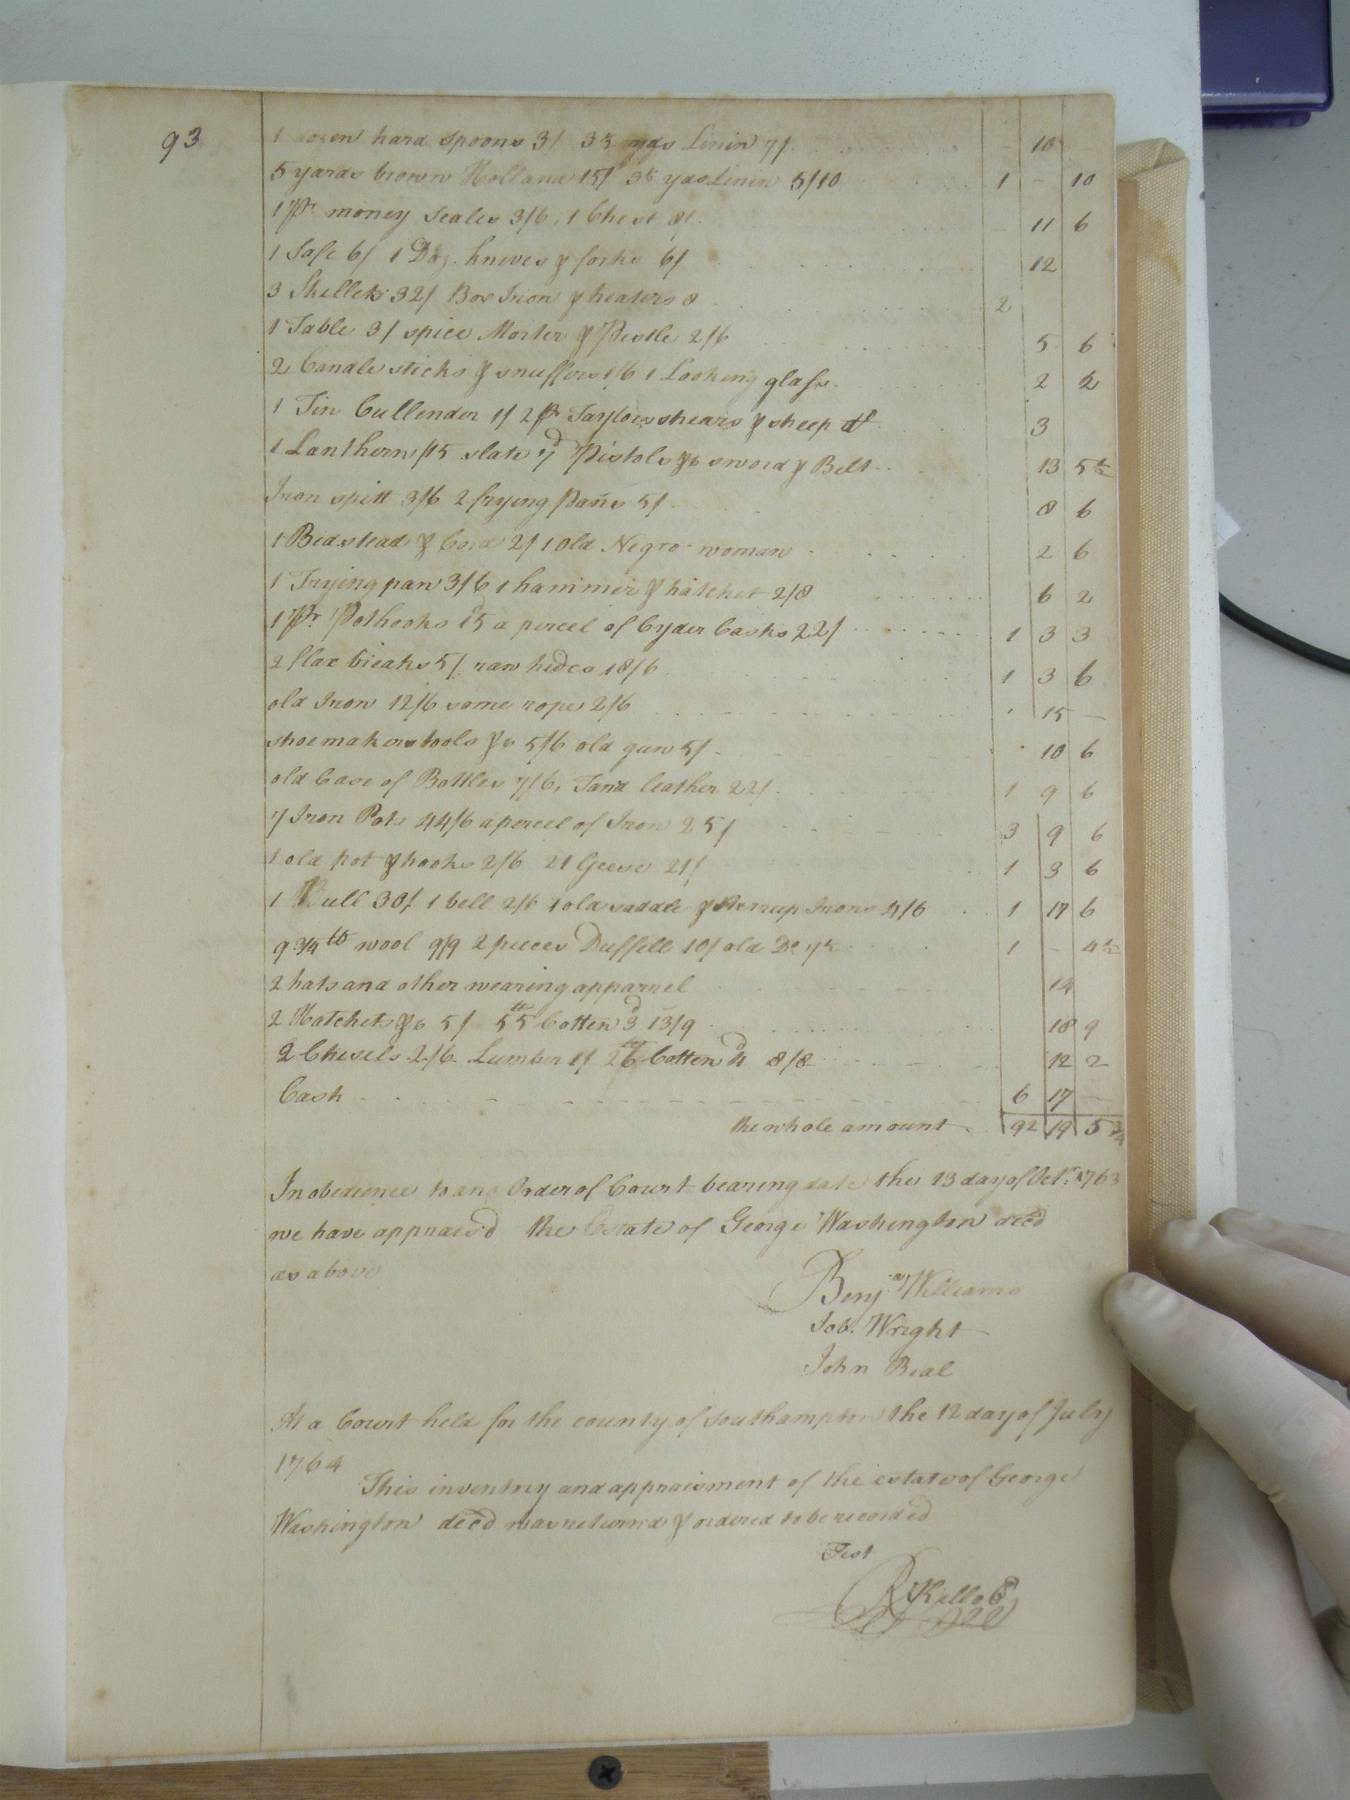 93
1 dozen hard spoons 3/ 3½ yds Linin 7/ 10
5 yards brown Holland 15/ 3½ yds Linin 5/10 1 - 10
1 Pr. money Scales 3/6. 1 Chest 8/. 11 6
1 Safe 6/ 1 Doz. knives & forks 6/ 12
3 Skellets 32/ Box Iron & heaters 8 2
1 Table 3/ spice Morter & Pestle 2/6 5 6
2 Candle sticks & snuffers 1/6 1 Looking glass. 2 2
1 Tin Cullender 1/ 2 pr Taylors shears & sheep do 3
1 Lanthorn /15 slate 7d Pistols &c sword & Belt 13 5½
Iron spitt 3/6 2 frying Pans 5/ 8 6
1 Bedstead & Cord 2/ 1 Old Negro woman 2 6
1 Frying pan 3/6 1 hammer & hatchet 2/8 6 2
1 Pr. Pothooks 15d a percel of Cyder Casks 22/ 1 3 3
2 flax breaks 5/ raw hides 18/6 1 3 6
old Iron 12/6 some rope 2/6 15 -
shoemakers tools &c 5/6 old gun 5/ 10 6
old Case of Bottles 7/6, Tan'd leather 22/ 1 9 6
7 Iron Pots 44/6 a percel of Iron 25/ 3 9 6
1 old pot & hooks 2/6 21 Geese 21/ 1 3 6
1 Bull 30/ 1 bell 2/6 1 old saddle & Sterrup Irons 4/6 1 17 6
9 3/4 lb wool 9/9 2 pieces Duffell 10/ old Do. 7½ 1 - 4½
2 hats and other wearing apparrel 14
2 Hatchets &c 5/ 55 lb Cotten 3d 13/9 18 9
2 Chisels 2/6. Lumber 1/ 26 lb Cotten 4d 8/8 12 2
Cash 6 17 -
the whole amount 92 19 5 3/4
In obedience to an Order of Court bearing date the 13 day of Octr. 1763
we have apprais'd the Estate of George Washington dec'd
as above
Benjn Williams
Job. Wright
John Beal
At a Court held for the county of Southampton the 12 day of July
1764
This inventry and appraisment of the estate of George
Washington dec'd was returned & ordered to be recorded
Test
R Kello C